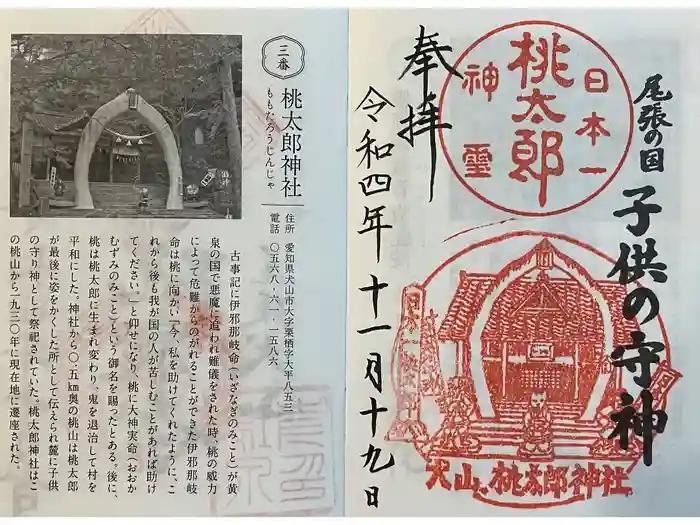 奉拝
令和四年十一月十九日
日本一
桃太郎
神霊
尾張の国
子供の守神
犬山 桃太郎神社
三番
桃太郎神社
ももたろうじんじゃ
住所 愛知県犬山市大字栗栖字大平八五三
電話 〇五六八・六一・一五八六
古事記に伊邪那岐命(いざなぎのみこと)が黄
泉の国で悪魔に追われ難儀をされた時、桃の威力
によって危難からのがれることができた伊邪那岐
命は桃に向かい「今、私を助けてくれたように、こ
れから後も我が国の人が苦しむことがあれば助け
てください。」と仰せになり、桃に大神実命(おおか
むずみのみこと)という御名を賜ったとある。後に、
桃は桃太郎に生まれ変わり、鬼を退治して村を
平和にした。神社から〇・五km奥の桃山は桃太郎
が最後に姿をかくした所として伝えられ麓に子供
の守り神として祭祀されていた。桃太郎神社はこ
の桃山から一九三〇年に現在地に遷座された。